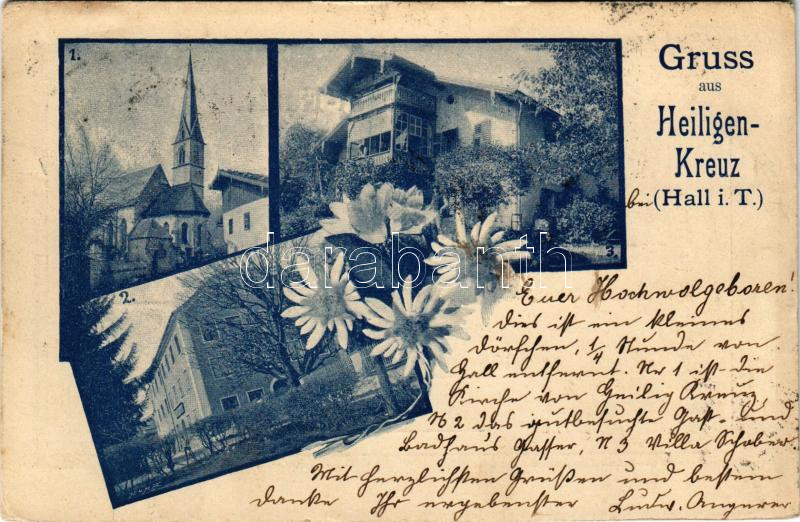 1.
Gruss
aus
Heiligen-
Kreuz
bei (Hall i. T.)
3.
2.
darabanth
Euer Hochwolgeboren!
Dies ist ein kleines
Dörfchen, 1/4 Stunde von
Hall entfernt. Nr 1 ist die
Kirche von Heilig Kreuz,
N 2 das gutbesuchte Gast- und
Badhaus Gasser, N 3 Villa Schober.
Mit herzlichsten Grüßen und bestem
Danke Ihr ergebenster Ludw. Angerer